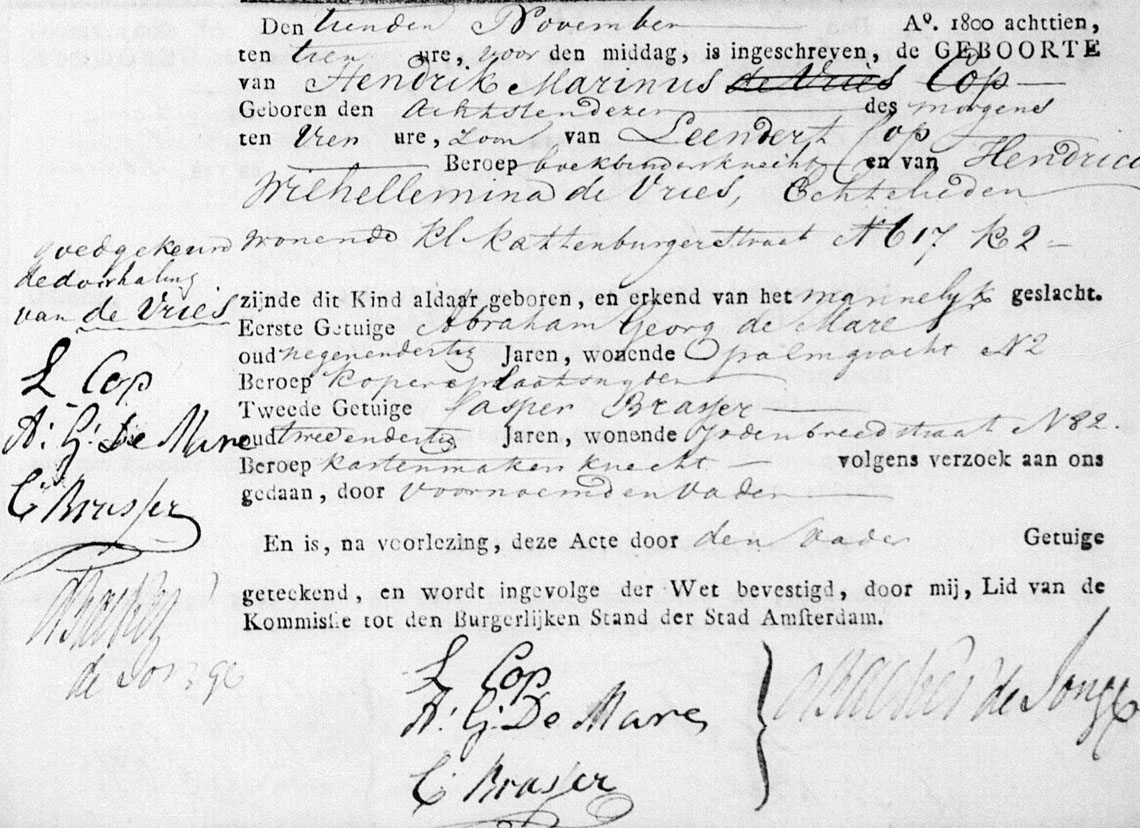 Den tienden November A°. 1800 achttien,
ten tien ure, voor den middag, is ingeschreven, de GEBOORTE
van Hendrik Marinus de Vries Cop
Geboren den Achtstendezer des morgens
ten vier ure, zoon van Leendert Cop
Beroep boekbindersknecht en van Hendrica
Wilhellemina de Vries, Echtelieden
wonende Kl Kattenburgerstraat N 617 K 2
goedgekeurd
de doorhaling
van de Vries
L Cop
A: G: De Mare
C Brasser
de Jonge
zijnde dit Kind aldaar geboren, en erkend van het mannelyk geslacht.
Eerste Getuige Abraham Georg de Mare
oud negenendertig Jaren, wonende Palmgracht N 2
Beroep Koperplaatsnyder
Tweede Getuige Casper Brasser
oud tweedendertig Jaren, wonende Jodenbreedstraat N 82.
Beroep Kastenmakersknecht volgens verzoek aan ons
gedaan, door voornoemden Vader
En is, na voorlezing, deze Acte door den Vader Getuige
geteekend, en wordt ingevolge der Wet bevestigd, door mij, Lid van de
Kommissie tot den Burgerlijken Stand der Stad Amsterdam.
L Cop
A: G: De Mare
C Brasser
de Jonge